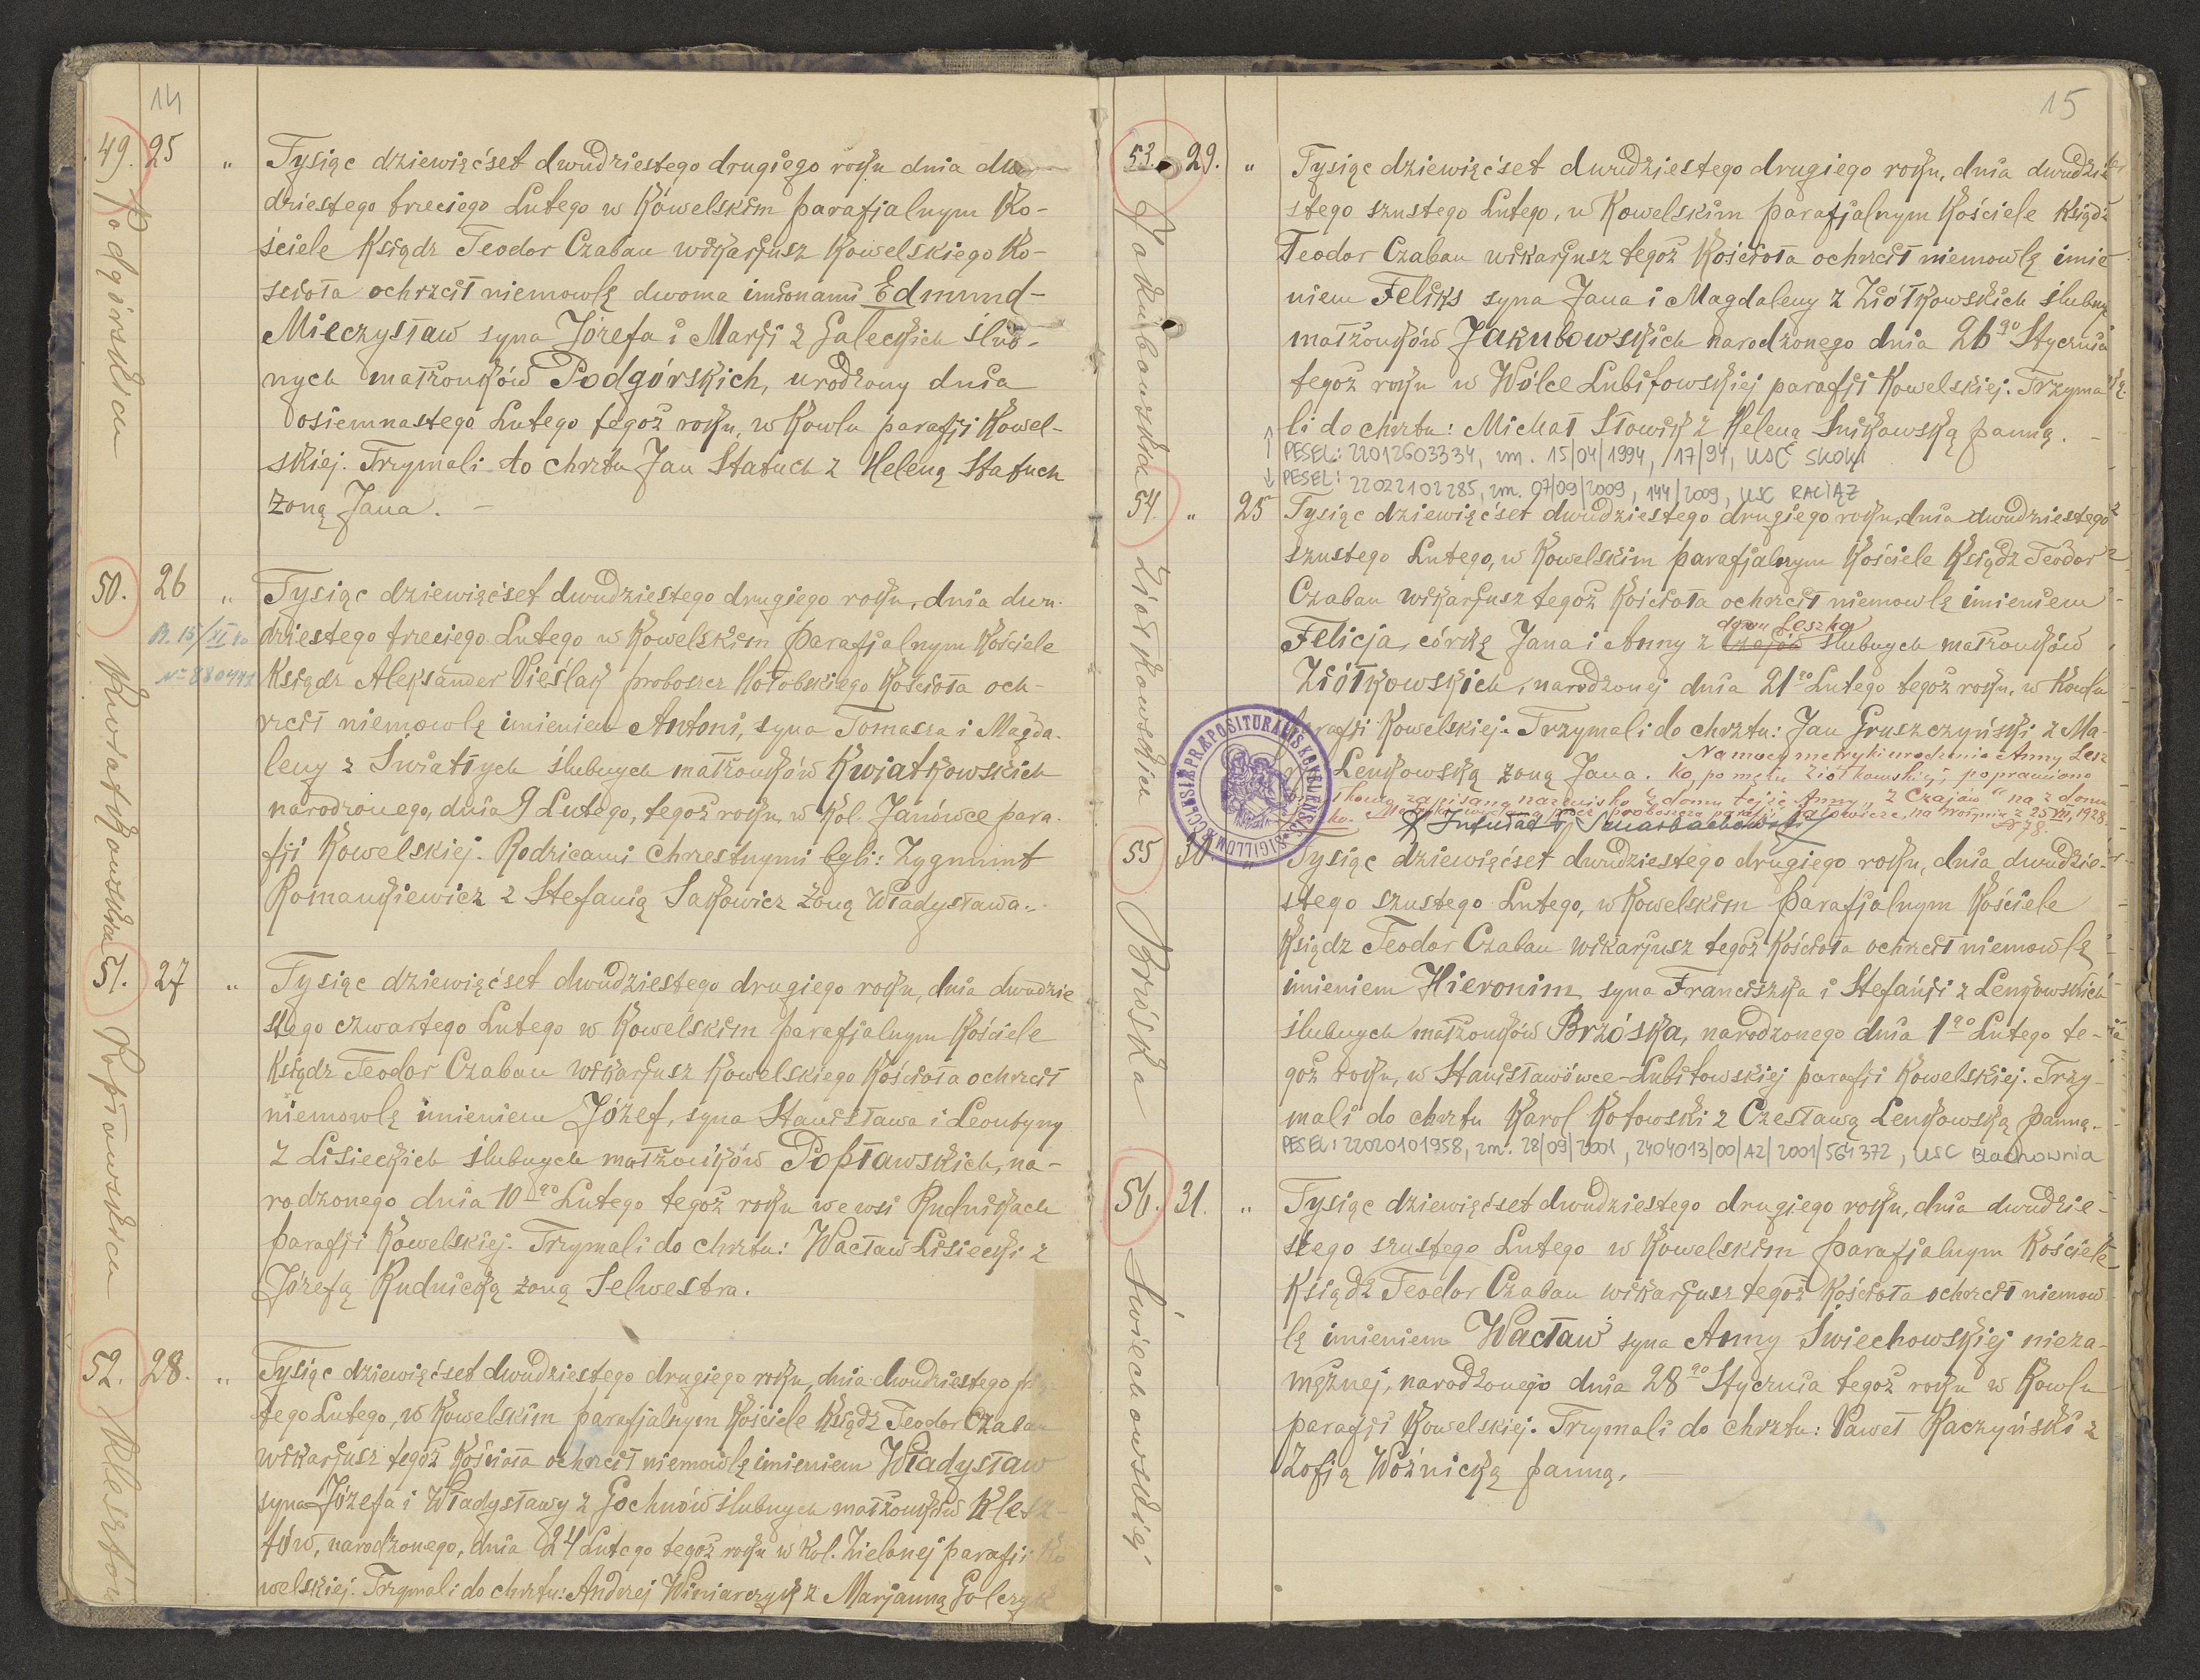 14
49. 25 " Tysiąc dziewięćset dwudziestego drugiego roku dnia dwu-
dziestego trzeciego Lutego w Kowelskim parafjalnym Ko-
ściele Ksiądz Teodor Czaban wikarjusz Kowelskiego Ko-
ścioła ochrzcił niemowlę dwoma imionami Edmund-
Mieczysław syna Józefa i Marji z Galeckich ślub-
nych małżonków Podgórskich, urodzony dnia
osiemnastego Lutego tegoż roku, w Kowlu parafji Kowel-
skiej. Trzymali do chrztu Jan Statuch z Heleną Statuch
żoną Jana. –
Podgórskich
50. 26 " Tysiąc dziewięćset dwudziestego drugiego roku, dnia dwu-
dziestego trzeciego Lutego w Kowelskim parafjalnym Kościele
Ksiądz Aleksander Pieślak proboszcz Hołobskiego Kościoła och-
rzcił niemowlę imieniem Antoni, syna Tomasza i Magda-
leny z Światłych ślubnych małżonków Kwiatkowskich
narodzonego, dnia 9 Lutego, tegoż roku, w Kol. Janówce para-
fji Kowelskiej. Rodzicami chrzestnymi byli: Zygmunt
Romankiewicz z Stefanią Sakowicz żoną Władysława.
15/XI
Nº 880441
Kwiatkowskich
51. 27 " Tysiąc dziewięćset dwudziestego drugiego roku, dnia dwudzie
stego czwartego Lutego w Kowelskim parafjalnym Kościele
Ksiądz Teodor Czaban wikarjusz Kowelskiego Kościoła ochrzcił
niemowlę imieniem Józef, syna Stanisława i Leontyny
z Lisieckich ślubnych małżonków Popławskich, na-
rodzonego dnia 10go Lutego tegoż roku we wsi Rudnikach
parafji Kowelskiej. Trzymali do chrztu: Wacław Lisiecki z
Józefą Rudnicką żoną Selwestra.
Popławskich
52. 28. " Tysiąc dziewięćset dwudziestego drugiego roku, dnia dwudziestego pią
tego Lutego, w Kowelskim parafjalnym Kościele Ksiądz Teodor Czaban
wikarjusz tegoż Kościoła ochrzcił niemowlę imieniem Władysław
syna Józefa i Władysławy z Gochnów ślubnych małżonków Klesz-
tów, narodzonego, dnia 24 Lutego tegoż roku w Kol. Zielonej parafji Ko
welskiej. Trzymali do chrztu: Andrzej Winiarczyk z Marjanną Golczyk
Klesztów
15
53. 29. " Tysiąc dziewięćset dwudziestego drugiego roku, dnia dwudzie
stego szustego Lutego, w Kowelskim parafjalnym Kościele Ksiądz
Teodor Czaban wikarjusz tegoż Kościoła ochrzcił niemowlę imie
niem Feliks syna Jana i Magdaleny z Ziółkowskich ślubnych
małżonków Jakubowskich narodzonego dnia 26go Stycznia
tegoż roku w Wólce Lubitowskiej parafji Kowelskiej. Trzyma
li do chrztu: Michał Słowik z Heleną Snikowską panną. –
↑ PESEL: 22012603334, zm. 15/04/1994, /17/94, USC SKOKI
↓ PESEL: 22022102285, zm. 07/09/2009, 144/2009, USC RACIĄŻ
Jakubowskich
54. " 25 Tysiąc dziewięćset dwudziestego drugiego roku, dnia dwudziestego
szustego Lutego, w Kowelskim parafjalnym Kościele Ksiądz Teodor
Czaban wikarjusz tegoż Kościoła ochrzcił niemowlę imieniem
domu Leszko
Felicja, córkę Jana i Anny z Czajów ślubnych małżonków
Ziółkowskich, narodzonej dnia 21go Lutego tegoż roku, w Kowlu
parafji Kowelskiej. Trzymali do chrztu: Jan Gruszczyński z Ma-
Lenkowską żoną Jana.
Na mocy metryki urodzenia Anny Lesz
ko, po mężu Ziółkowskiej, poprawiono
zapisaną nazwisko z domu tejże Anny „z Czajów" na z domu
SIGILLUM ECCLESIÆ PRÆPOSITURALIS
Ziółkowskich
55 30 " Tysiąc dziewięćset dwudziestego drugiego roku, dnia dwudzie-
stego szustego Lutego, w Kowelskim parafjalnym Kościele
Ksiądz Teodor Czaban wikarjusz tegoż Kościoła ochrzcił niemowlę
imieniem Hieronim syna Franciszka i Stefanji z Lenkowskich
ślubnych małżonków Brzóska, narodzonego dnia 1go Lutego te-
goż roku, w Stanisławówce-Lubitowskiej parafji Kowelskiej. Trzy-
mali do chrztu Karol Kotowski z Czesławą Lenkowską panną.
PESEL: 22020101958, zm. 28/09/2001, 2404013/00/AZ/2001/564372, USC Blachownia
Brzóska
56. 31. " Tysiąc dziewięćset dwudziestego drugiego roku, dnia dwudzie-
stego szustego Lutego w Kowelskim parafjalnym Kościele
Ksiądz Teodor Czaban wikarjusz tegoż Kościoła ochrzcił niemow
lę imieniem Wacław syna Anny Świechowskiej nieza-
mężnej, narodzonego dnia 28go Stycznia tegoż roku w Kowlu
parafji Kowelskiej. Trzymali do chrztu: Paweł Raczyński z
Zofią Woźnicką panną,
Świechowskiej